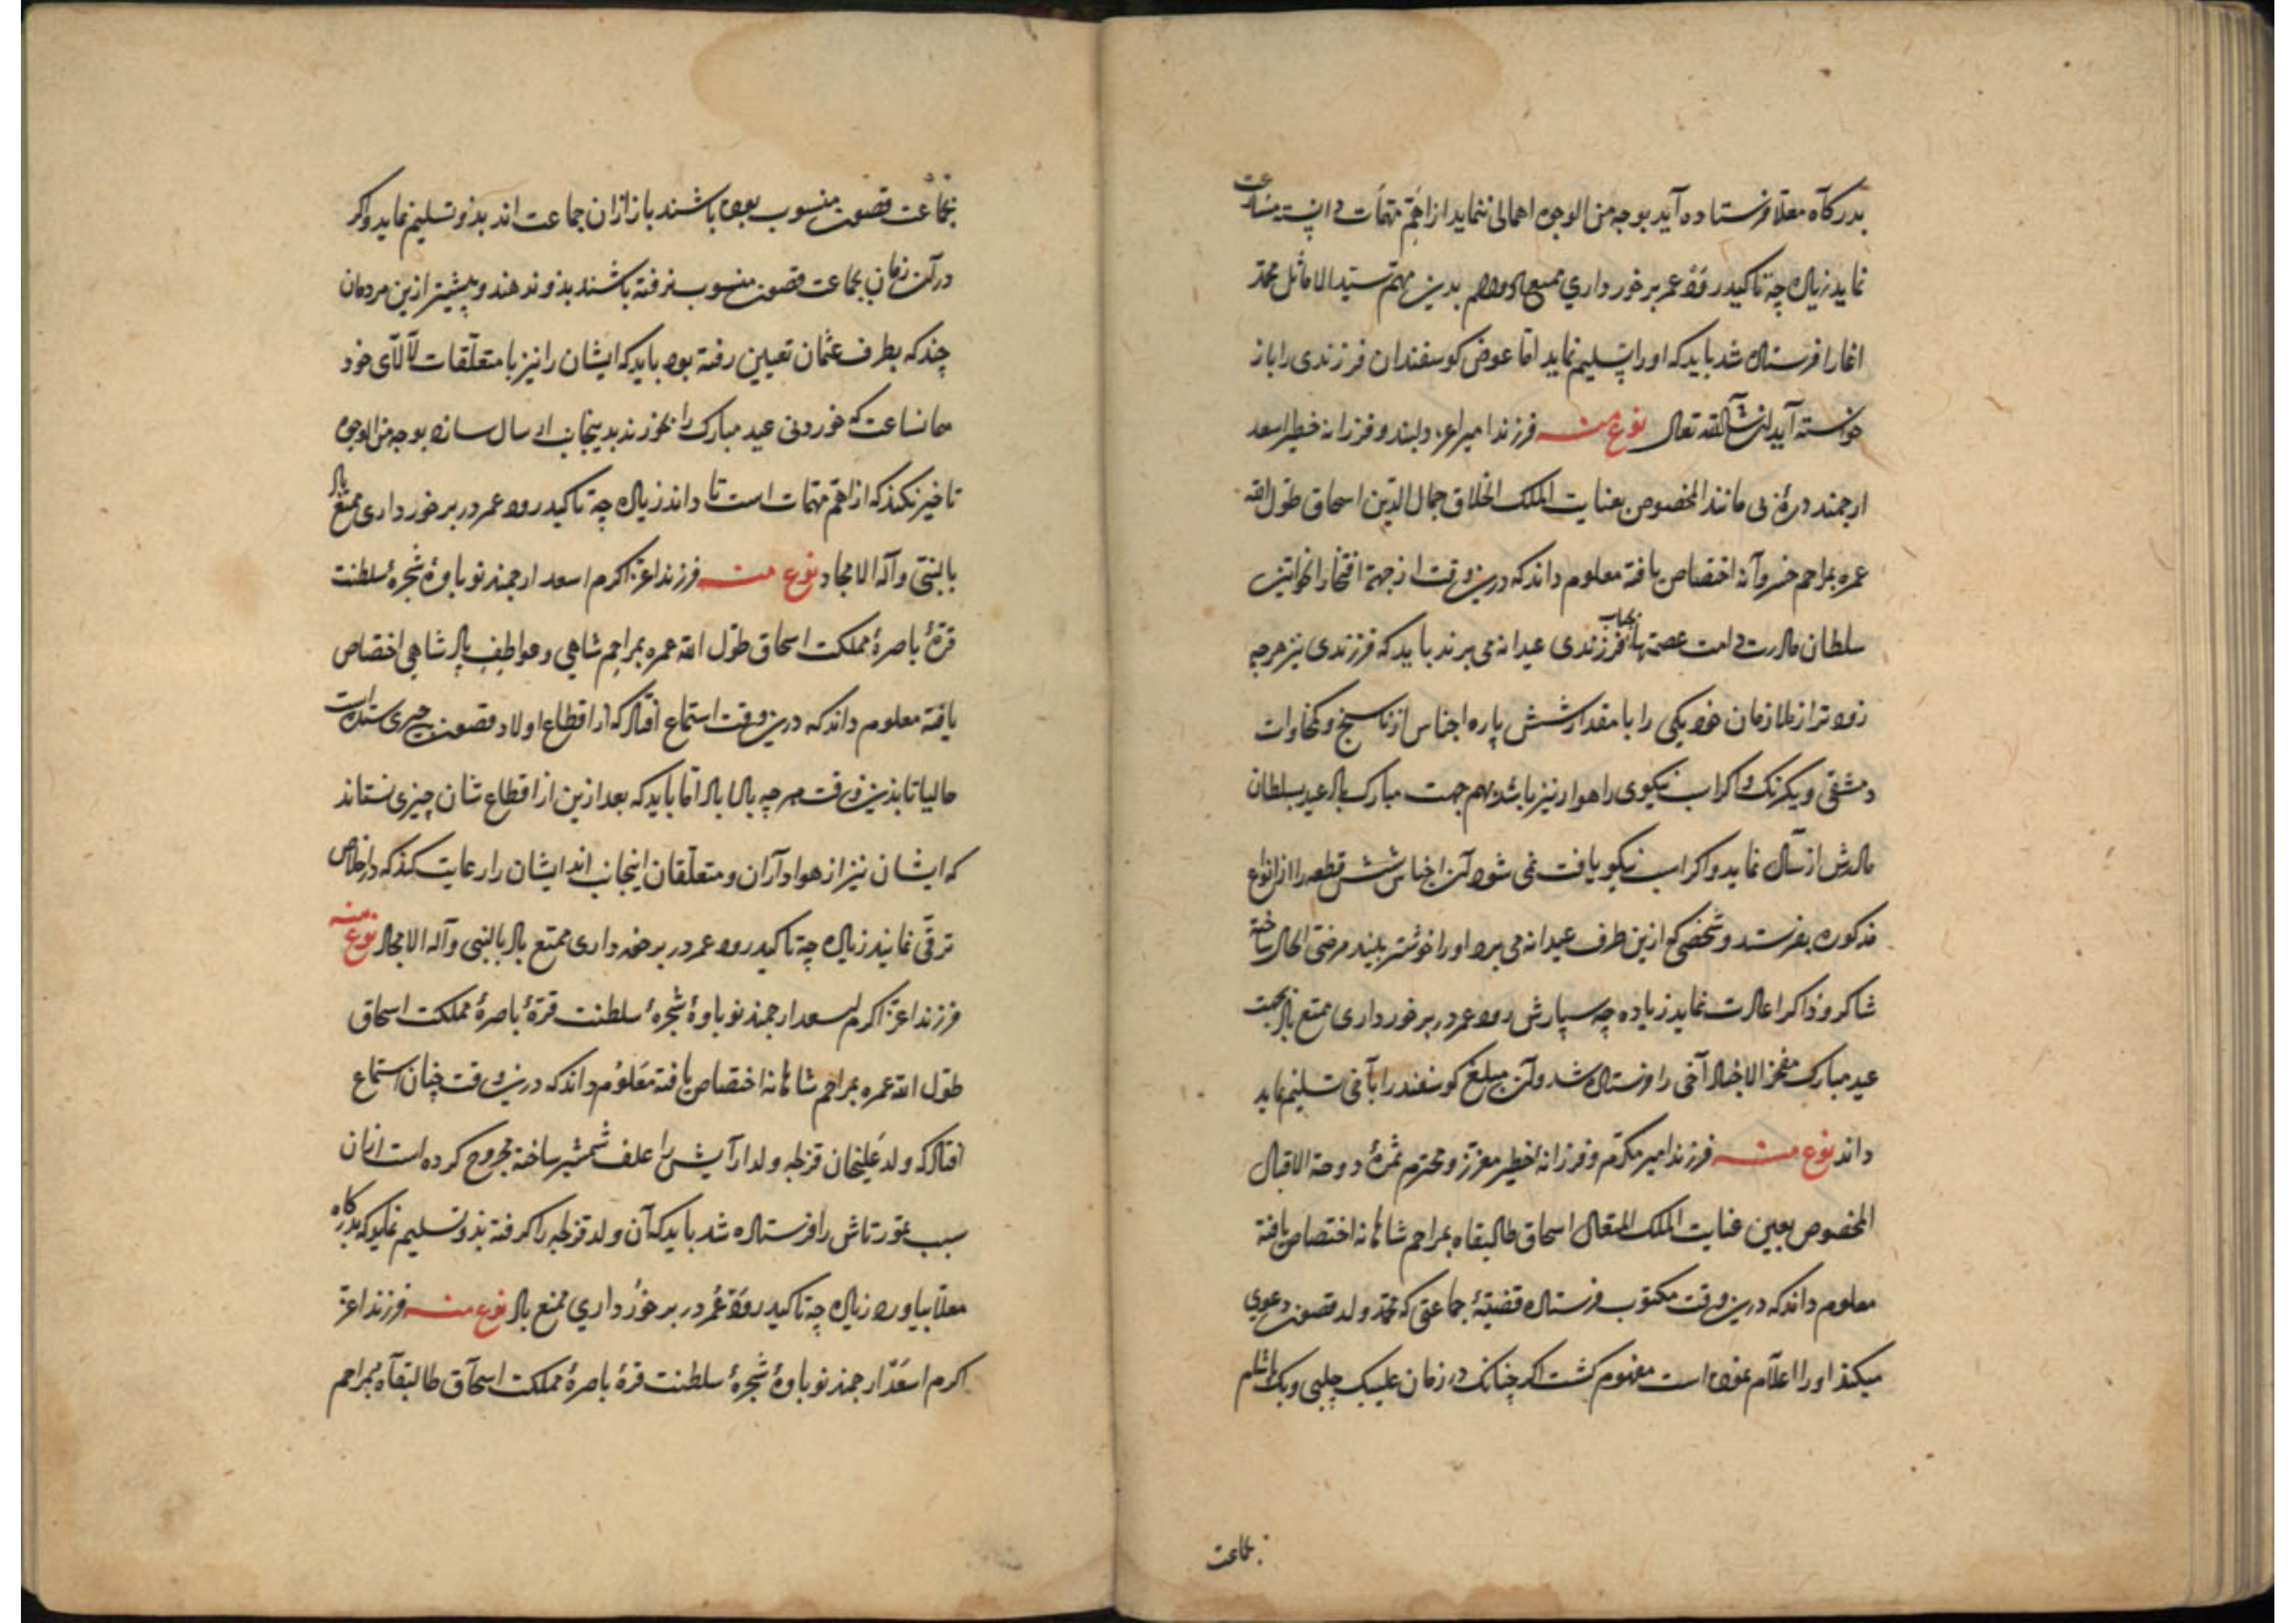 بدرکاه معلا فرستاده آید بوجه من الوجوه اهمالی ننماید از اهم مهمات دانسته مسارعت
نماید زیاده چه تاکید رود عمر برخورداري بدین مهم سید الاماثل محمد
اغا را فرستاده شد باید که او را تسلیم نماید اما عوض کوسفندان فرزندی را باز
خواسته آید ان شآ الله تعالی نوع منه فرزند امیر اعز دلبند و فرزانه خطیر اسعد
ارجمند درهٔ بی مانند المخصوص بعنایت الملک الخلاق جمال الدین اسحاق طول الله
عمره بمراحم خسروآنه اختصاص یافته معلوم داند که درین وقت از جهة افتخار الخواتین
سلطان مادرت دامت عصمتها بجانب فرزندی عیدانه می برند باید که فرزندی نیز هرچه
زودتر از ملازمان خود یکی را با مقدار شش پاره اجناس از ناسیج و کمخاوات
دمشقی و یکرنک و اکر اسب نیکوی راهوار نیز باشد بهم جهت مبارک باد عید بسلطان
مادرش ارسال نماید و اکر اسب نیکو یافت نمی شود آن اجناس شش قطعه را از انواع
مذکوره بفرستد و شخصی که ازین طرف عیدانه می برد او را خوشتر بیند مرضی الحال ساخته
شاکر و ذاکر اعادت نماید زیاده چه سپارش رود عمر در برخورداری ممتع باد بجهت
عید مبارک مفخر الاخیار آخی را فرستاده شد و آن مبلغ کوسفند را بآخی تسلیم نماید
داند نوع منه فرزند امیر مکرم و فرزانه اخطیر معزز و محترم ثمرهٔ دوحة الاقبال
المخصوص بعین عنایت الملک المتعال اسحاق طالبقاه بمراحم شاهانه اختصاص یافته
معلوم داند که درین وقت مکتوب فرستاده قضیهٔ جماعتی که محمد ولد قصون دعوی
میکند او را اعلآم نموده است مفهوم کشت اکر چنانک در زمان علیبک چلبی و بک
بجماعت
بجماعت قصون منسوب بوده باشند باز ازان جماعت اند بذو تسلیم نماید و اکر
در آن زمان بجماعت قصون منسوب نرفته باشند بذو ندهند و پیشتر ازین مردمان
چند که بطرف عثمان تعیین رفته بود باید که ایشان را نیز با متعلقات لآلآی خود
همانساعت که خوردنی عید مبارک را بخورند بدینجانب ارسال سازد بوجه من الوجوه
تاخیر نکند که از اهم مهمات است تا داند زیاده چه تاکید رود عمر در برخورداری ممتع باد
بالنبی وآله الامجاد نوع منه فرزند اعز اکرم اسعد ارجمند نوباوهٔ شجرهٔ سلطنت
قرهٔ باصرهٔ مملکت اسحاق طول الله عمره بمراحم شاهی و عواطف پادشاهی اختصاص
یافته معلوم داند که درین وقت استماع افتاد که از اقطاع اولاد قصون چیزی ستده است
حالیا تا بذین وقت هرچه باد اباد اما باید که بعد ازین از اقطاع شان چیزی نستاند
که ایشان نیز از هوادآران و متعلقان اینجانب اند ایشان را رعایت کند که در اخلاص
ترقی نمایند زیاده چه تاکید رود عمر در برخورداری ممتع باد بالنبی وآله الامجاد نوع منه
فرزند اعز اکرم اسعد ارجمند نوباوهٔ شجرهٔ سلطنت قرهٔ باصرهٔ مملکت اسحاق
طول الله عمره بمراحم شاهانه اختصاص یافته معلوم داند که درین وقت چنان استماع
افتاد که ولد علیخان قزلجه ولدار آیش را علف شمشیر ساخته مجروح کرده است ازان
سبب تمورتاش را فرستاده شد باید که آن ولد قزلجه را کرفته بذو تسلیم نماید که بدرکاه
معلا بیاورد زیاده چه تاکید رود عمر در برخورداري ممتع باد نوع منه فرزند اعز
اکرم اسعد ارجمند نوباوهٔ شجرهٔ سلطنت قرهٔ باصرهٔ مملکت اسحآق طالبقآه بمراحم